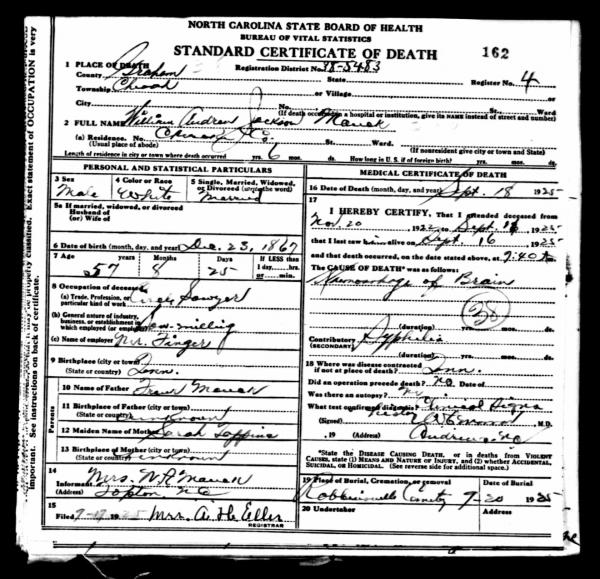 NORTH CAROLINA STATE BOARD OF HEALTH
BUREAU OF VITAL STATISTICS
STANDARD CERTIFICATE OF DEATH 162
1 PLACE OF DEATH Registration District No. 38-5483
County Graham State Register No. 4
Township Cheoah or Village or
City No. St. Ward
(If death occurred in a hospital or institution, give its NAME instead of street and number)
2 FULL NAME William Andrew Jackson
(a) Residence. No. St. Ward.
(Usual place of abode) (If nonresident give city or town and State)
Length of residence in city or town where death occurred yrs. 6 mos. ds. How long in U. S. if of foreign birth? yrs. mos. ds.
PERSONAL AND STATISTICAL PARTICULARS
3 Sex 4 Color or Race 5 Single, Married, Widowed, or Divorced (write the word)
Male White Married
5a If married, widowed, or divorced
Husband of
(or) Wife of
6 Date of birth (month, day, and year) Dec. 23, 1867
7 Age years Months Days If LESS than
57 8 25 1 day, hrs.
or min.
8 Occupation of deceased
(a) Trade, Profession, or
particular kind of work Sawyer
(b) General nature of industry,
business, or establishment in
which employed (or employer) Saw-milling
(c) Name of employer Mr. Finger
9 Birthplace (city or town)
(State or country) Tenn.
Parents
10 Name of Father Frank
11 Birthplace of Father (city or town)
(State or country) Unknown
12 Maiden Name of Mother Sarah
13 Birthplace of Mother (city or town)
(State or country) Unknown
14
Informant Mrs. W A
(Address) Topton, N.C.
15
Filed 1925 Mrs. A. H. Eller
REGISTRAR
MEDICAL CERTIFICATE OF DEATH
16 Date of Death (month, day, and year) Sept. 18 1925
17
I HEREBY CERTIFY, That I attended deceased from
Nov. 20 192 to Sept. 1925
that I last saw him alive on Sept. 16 1925
and that death occurred, on the date stated above, at 9:40
The CAUSE OF DEATH* was as follows:
Hemorrhage of Brain
(duration) yrs. mos. ds.
Contributory Syphilis
(SECONDARY)
(duration) yrs. mos. ds.
18 Where was disease contracted
if not at place of death? Tenn.
Did an operation precede death? no Date of
Was there an autopsy? no
What test confirmed diagnosis? Clinical Signs
(Signed) M.D.
, 19 (Address) Andrews, NC
*State the DISEASE CAUSING DEATH, or in deaths from VIOLENT
CAUSES, state (1) MEANS AND NATURE OF INJURY, and (2) whether ACCIDENTAL,
SUICIDAL, OR HOMICIDAL. (See reverse side for additional space.)
19 Place of Burial, Cremation, or removal Date of Burial
Robbinsville 9-20 1925
20 Undertaker Address
Exact statement of OCCUPATION is very
properly classified.
important. See instructions on back of certificate.